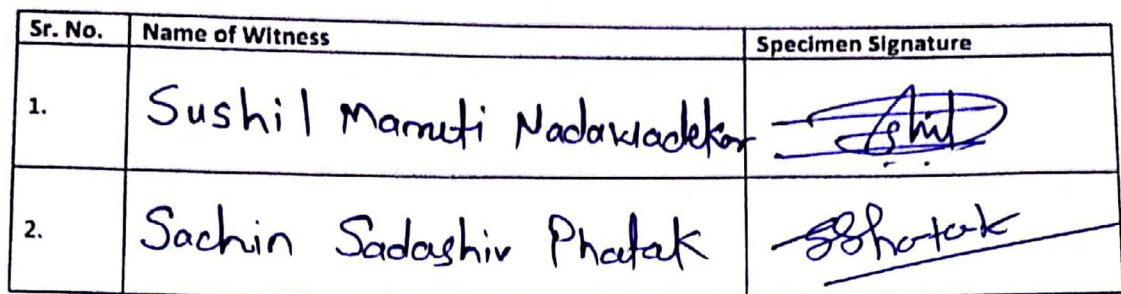 Sr. No. Name of Witness Specimen Signature
1. Sushil Maruti Nadawadekar
2. Sachin Sadashiv Phatak SPhatak